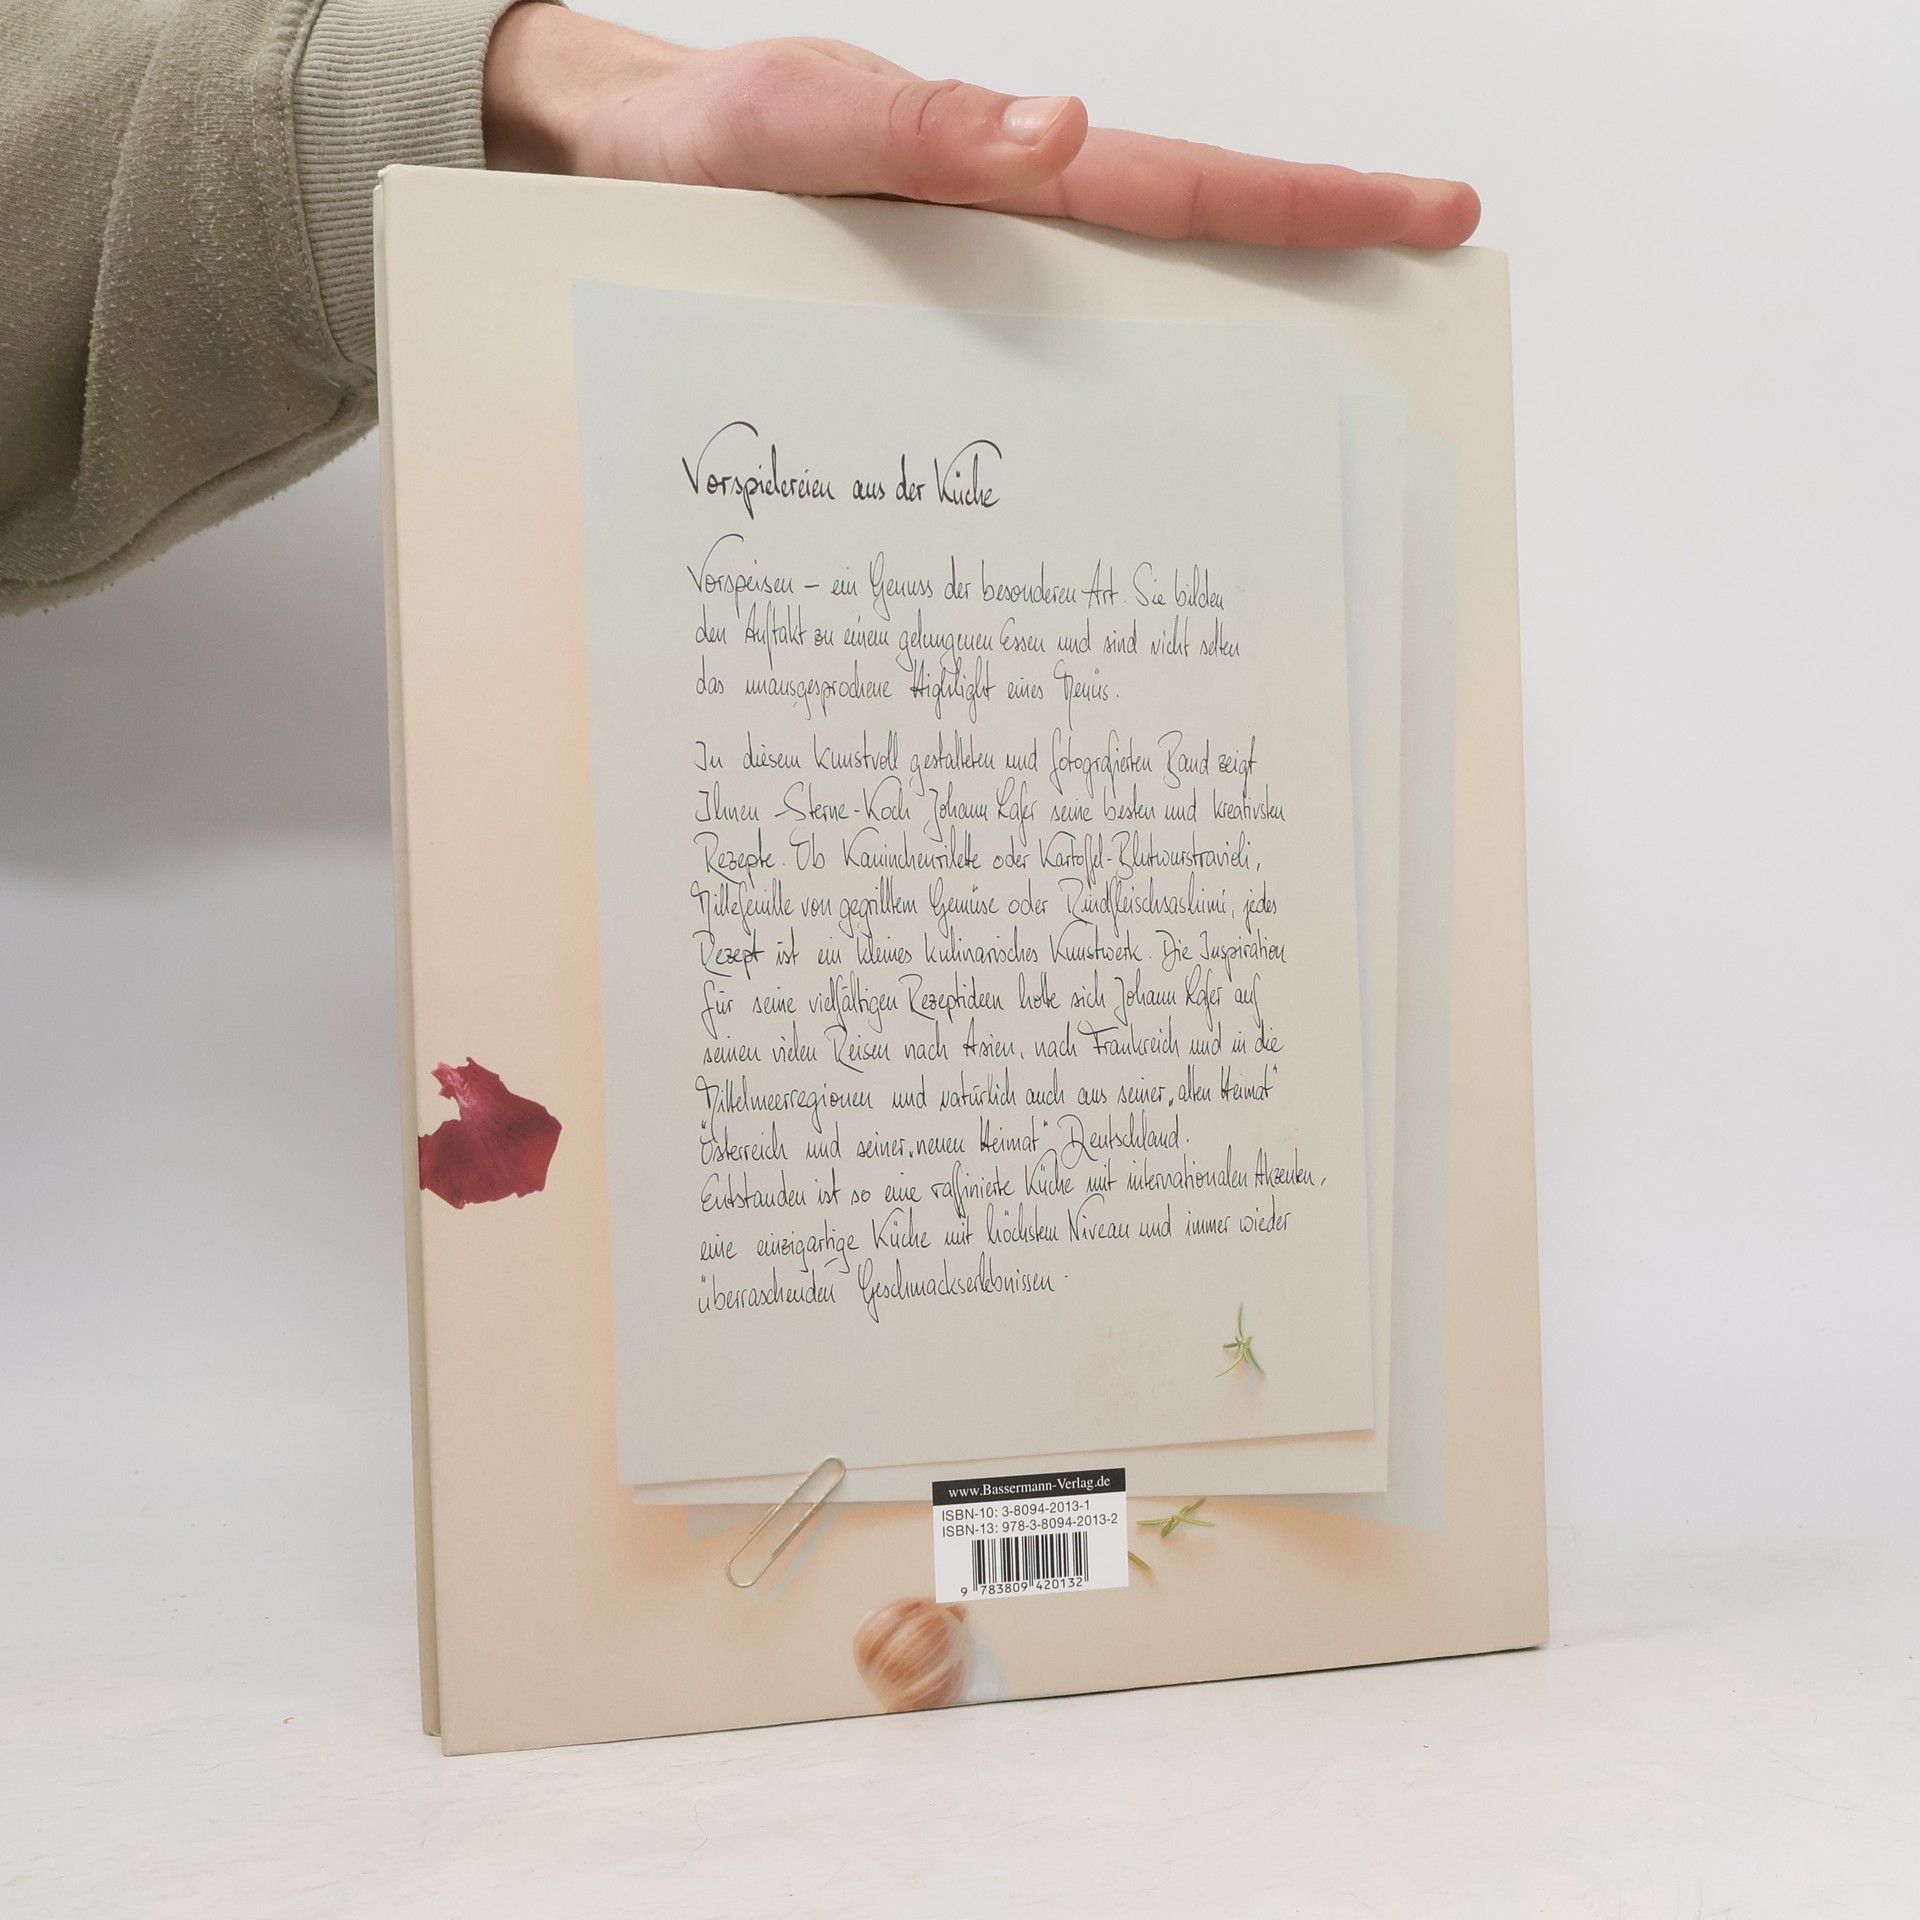 Vorspielereien aus der Küche
Vorspeisen – ein Genuss der besonderen Art. Sie bilden
den Auftakt zu einem gelungenen Essen und sind nicht selten
das unausgesprochene Highlight eines Menüs.
In diesem kunstvoll gestalteten und fotografierten Band zeigt
Ihnen Sterne-Koch Johann Lafer seine besten und kreativsten
Rezepte. Ob Kaninchenrilette oder Kartoffel-Blutwurstravioli,
Millefeuille von gegrilltem Gemüse oder Rindfleischsashimi, jedes
Rezept ist ein kleines kulinarisches Kunstwerk. Die Inspiration
für seine vielfältigen Rezeptideen holte sich Johann Lafer auf
seinen vielen Reisen nach Asien, nach Frankreich und in die
Mittelmeerregionen und natürlich auch aus seiner „alten Heimat"
Österreich und seiner „neuen Heimat" Deutschland.
Entstanden ist so eine raffinierte Küche mit internationalen Akzenten,
eine einzigartige Küche mit höchstem Niveau und immer wieder
überraschenden Geschmackserlebnissen.
www.Bassermann-Verlag.de
ISBN-10: 3-8094-2013-1
ISBN-13: 978-3-8094-2013-2
9 783809 420132